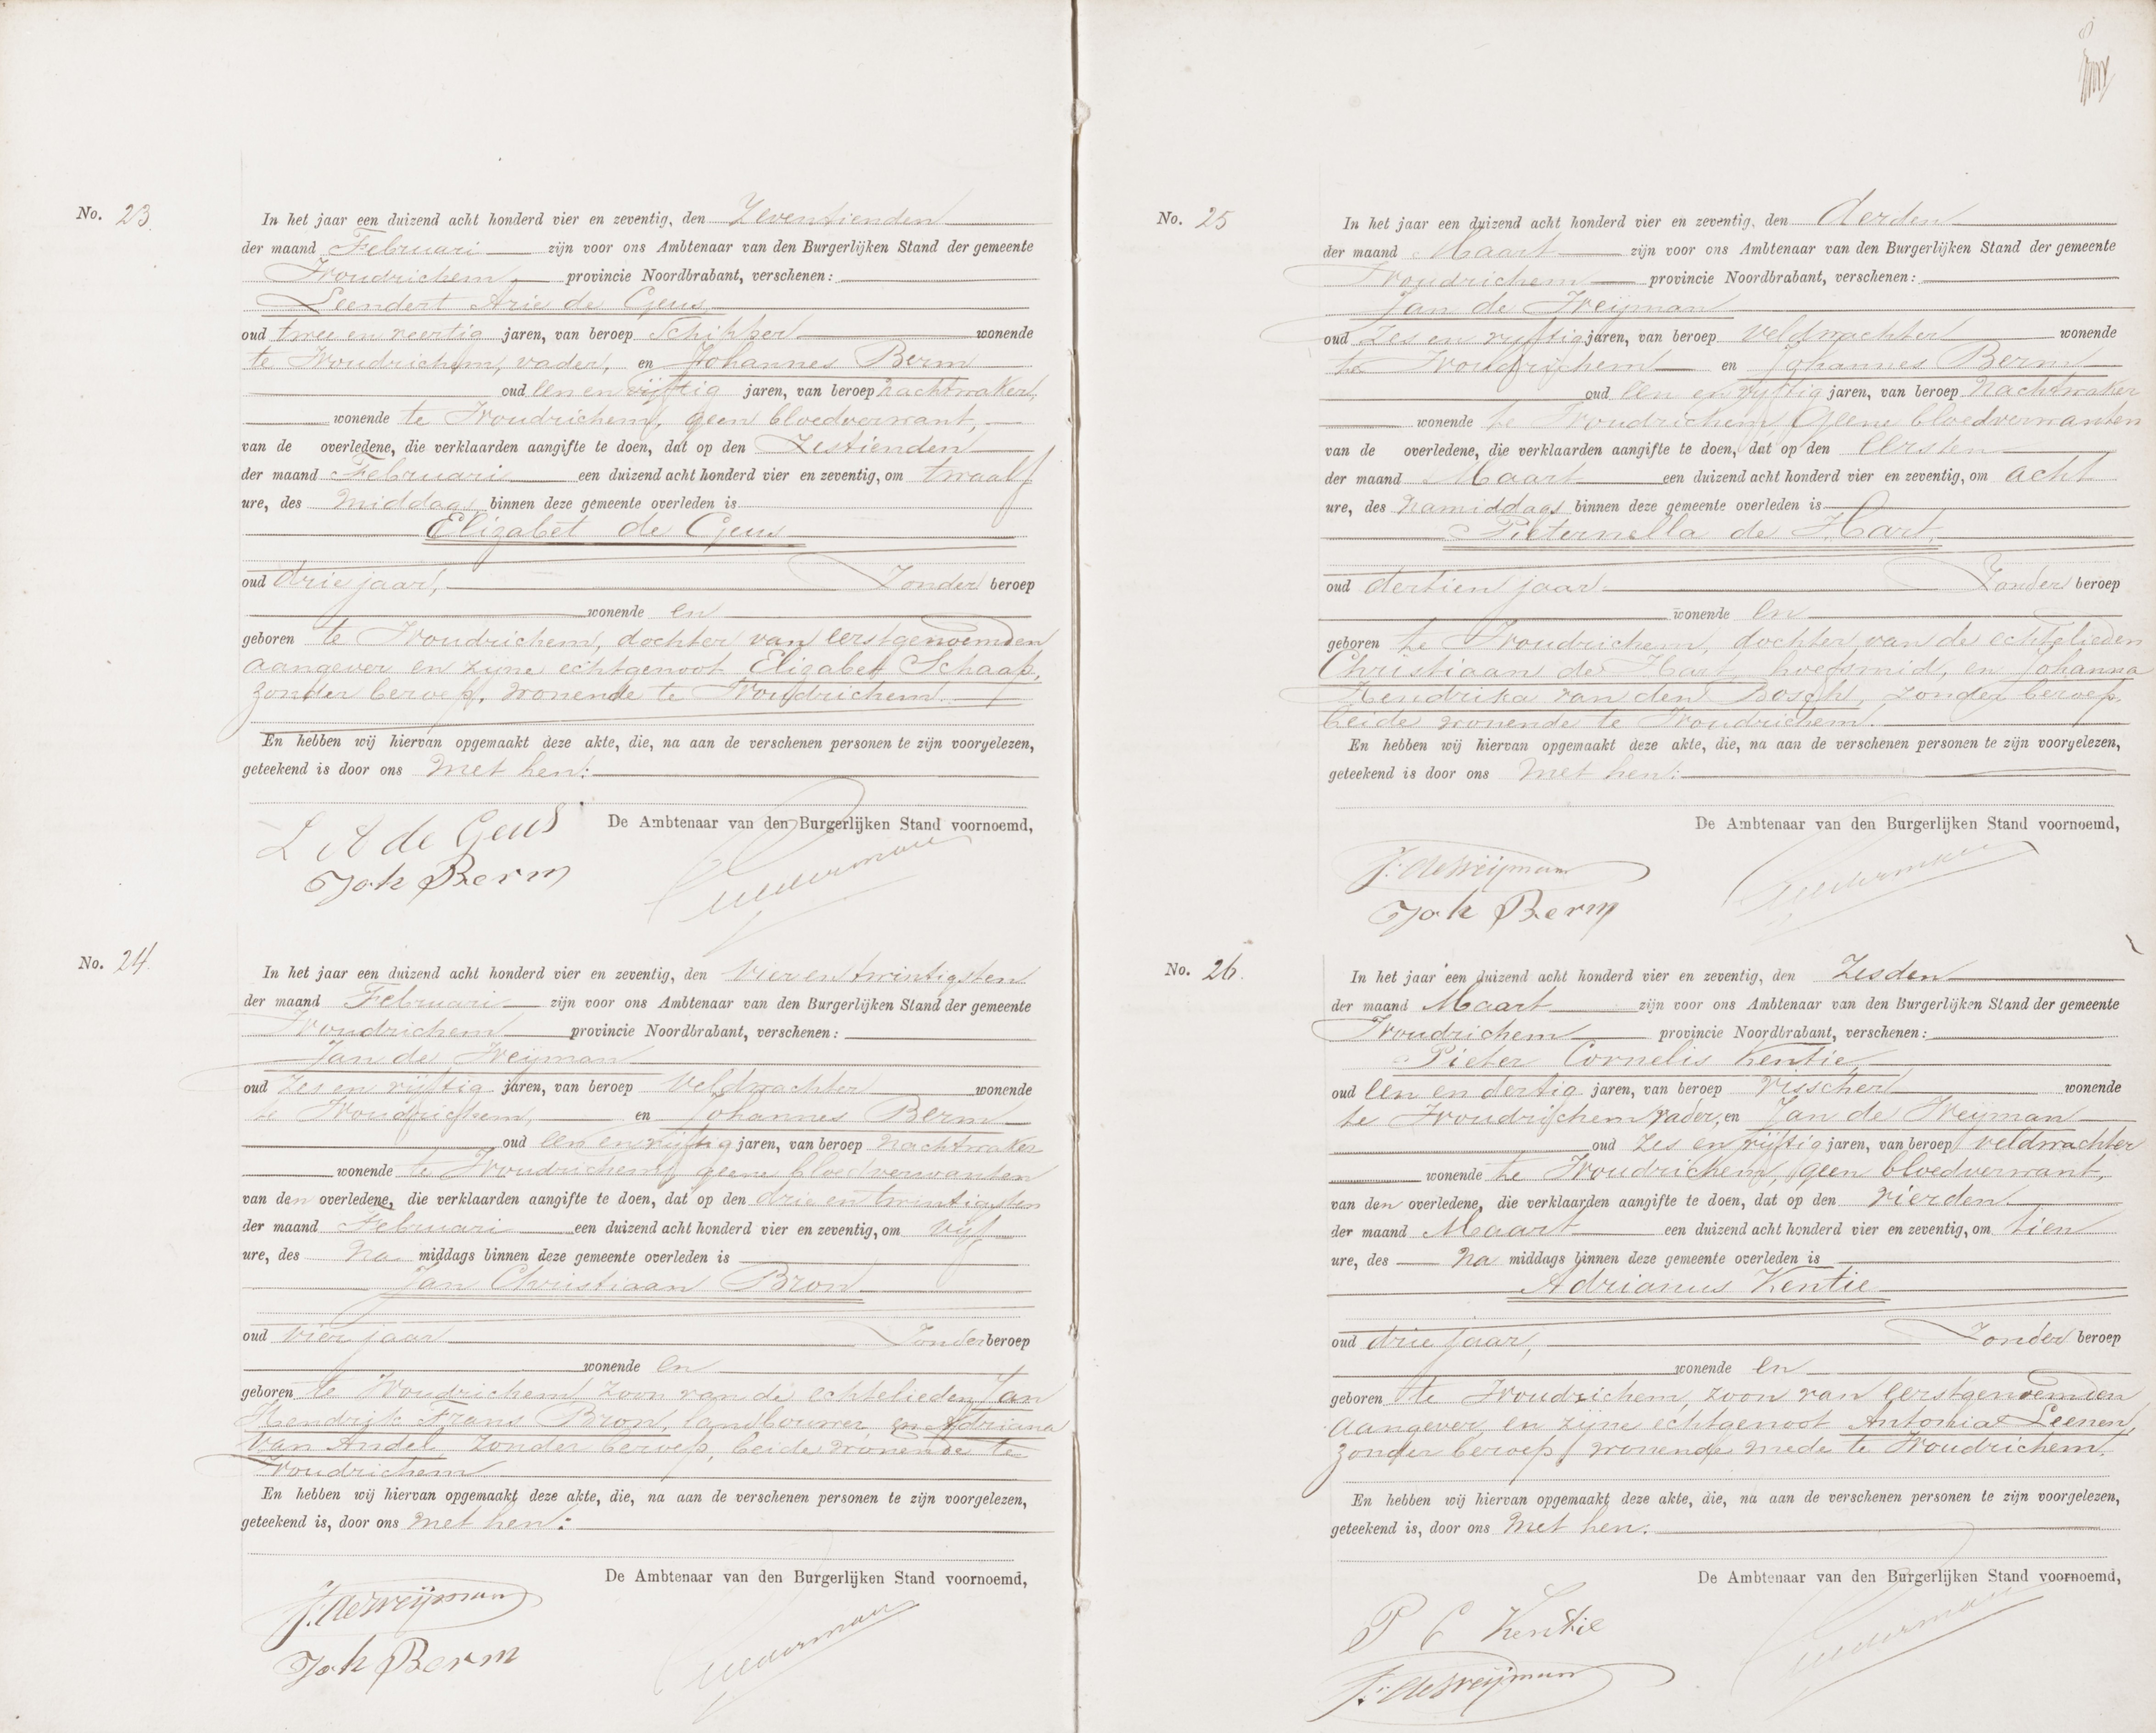 No. 23.
In het jaar een duizend acht honderd vier en zeventig, den Zeventienden
der maand Februari zijn voor ons Ambtenaar van den Burgerlijken Stand der gemeente
Woudrichem, provincie Noordbrabant, verschenen:
Leendert Arie de Geus,
oud twee en veertig jaren, van beroep Schipper wonende
te Woudrichem, vader, en Johannes Berm
oud een en vijftig jaren, van beroep nachtwaker,
wonende te Woudrichem, geen bloedverwant,
van de overledene, die verklaarden aangifte te doen, dat op den Zestienden
der maand Februari een duizend acht honderd vier en zeventig, om twaalf
ure, des middags binnen deze gemeente overleden is
Elizabet de Geus
oud drie jaar, Zonder beroep
wonende en
geboren te Woudrichem, dochter van eerstgenoemden
aangever en zijne echtgenoot Elizabet Schaap,
zonder beroep, wonende te Woudrichem.
En hebben wij hiervan opgemaakt deze akte, die, na aan de verschenen personen te zijn voorgelezen,
geteekend is door ons met hen:
De Ambtenaar van den Burgerlijken Stand voornoemd,
L A de Geus
Joh Berm
No. 24.
In het jaar een duizend acht honderd vier en zeventig, den Vierentwintigsten
der maand Februari zijn voor ons Ambtenaar van den Burgerlijken Stand der gemeente
Woudrichem provincie Noordbrabant, verschenen:
Jan de Weijman
oud Zes en vijftig jaren, van beroep Veldwachter wonende
te Woudrichem, en Johannes Berm
oud een en vijftig jaren, van beroep nachtwaker
wonende te Woudrichem, geene bloedverwanten
van den overledene, die verklaarden aangifte te doen, dat op den drie en twintigsten
der maand Februari een duizend acht honderd vier en zeventig, om vijf
ure, des na middags binnen deze gemeente overleden is
Jan Christiaan Bron
oud vier jaar Zonder beroep
wonende en
geboren te Woudrichem, zoon van de echtelieden Jan
Hendrik Frans Bron, landbouwer, en Adriana
van Andel zonder beroep, beide wonende te
Woudrichem
En hebben wij hiervan opgemaakt deze akte, die, na aan de verschenen personen te zijn voorgelezen,
geteekend is, door ons met hen:
De Ambtenaar van den Burgerlijken Stand voornoemd,
J. de Weijman
Joh Berm
No. 25
In het jaar een duizend acht honderd vier en zeventig, den derden
der maand Maart zijn voor ons Ambtenaar van den Burgerlijken Stand der gemeente
Woudrichem provincie Noordbrabant, verschenen:
Jan de Weijman
oud Zes en vijftig jaren, van beroep veldwachter wonende
te Woudrichem en Johannes Berm
oud een en vijftig jaren, van beroep Nachtwaker
wonende te Woudrichem, Geene bloedverwanten
van de overledene, die verklaarden aangifte te doen, dat op den eersten
der maand Maart een duizend acht honderd vier en zeventig, om acht
ure, des namiddags binnen deze gemeente overleden is
Pieternella de Hart,
oud dertien jaar Zonder beroep
wonende en
geboren te Woudrichem, dochter van de echtelieden
Christiaan de Hart, hoefsmid, en Johanna
Hendrika van den Bosch, zonder beroep,
beide wonende te Woudrichem.
En hebben wij hiervan opgemaakt deze akte, die, na aan de verschenen personen te zijn voorgelezen,
geteekend is door ons met hen:
De Ambtenaar van den Burgerlijken Stand voornoemd,
J. de Weijman
Joh Berm
No. 26.
In het jaar een duizend acht honderd vier en zeventig, den Zesden
der maand Maart zijn voor ons Ambtenaar van den Burgerlijken Stand der gemeente
Woudrichem provincie Noordbrabant, verschenen:
Pieter Cornelis Kentie,
oud een en dertig jaren, van beroep Visscher wonende
te Woudrichem, vader, en Jan de Weijman
oud zes en vijftig jaren, van beroep veldwachter
wonende te Woudrichem, geen bloedverwant,
van den overledene, die verklaarden aangifte te doen, dat op den vierden
der maand Maart een duizend acht honderd vier en zeventig, om tien
ure, des na middags binnen deze gemeente overleden is
Adrianus Kentie
oud drie jaar, Zonder beroep
wonende en
geboren te Woudrichem, zoon van eerstgenoemden
aangever, en zijne echtgenoot Antonia Leenen,
zonder beroep, wonende mede te Woudrichem.
En hebben wij hiervan opgemaakt deze akte, die, na aan de verschenen personen te zijn voorgelezen,
geteekend is, door ons met hen:
De Ambtenaar van den Burgerlijken Stand voornoemd,
P C Kentie
J. de Weijman